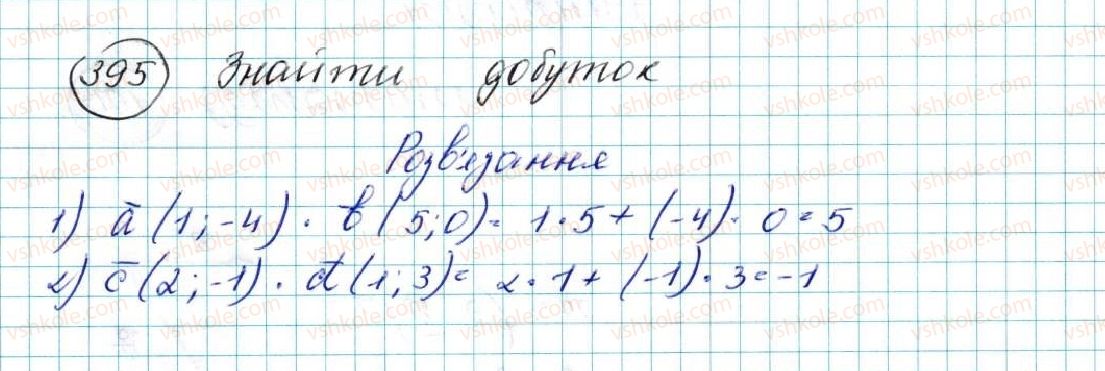 395 Знайти добуток
Розв'язання
1) a̅ (1; -4) · b̅ (5; 0) = 1 · 5 + (-4) · 0 = 5
2) c̅ (2; -1) · d̅ (1; 3) = 2 · 1 + (-1) · 3 = -1